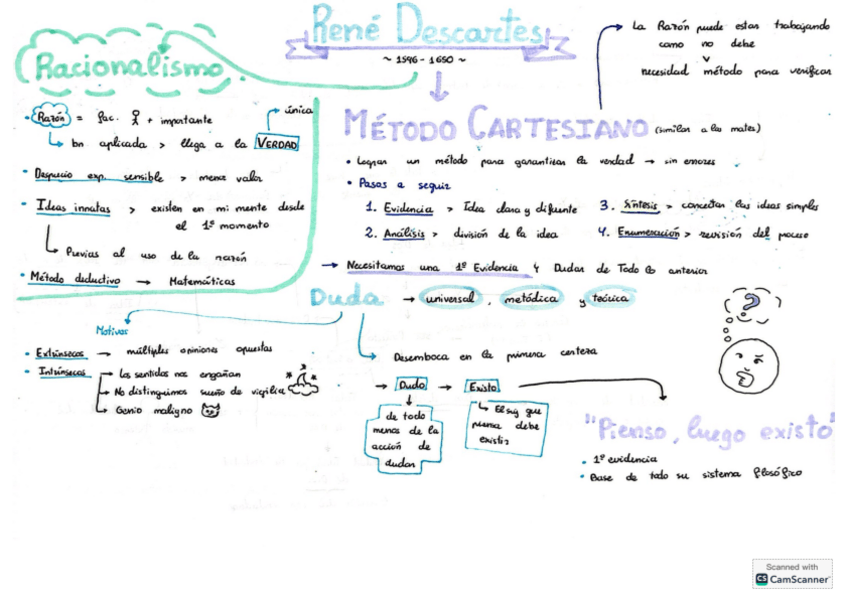 René Descartes
~ 1596 - 1650 ~
Racionalismo
• Razón = fac. + importante
bn aplicada > llega a la VERDAD
única
• Desprecio exp. sensible > menor valor
• Ideas innatas > existen en mi mente desde
el 1º momento
Previas al uso de la razón
• Método deductivo → Matemáticas
La Razón puede estar trabajando
como no debe
necesidad método para verificar
MÉTODO CARTESIANO (similar a las mates)
• Lograr un método para garantizar la verdad → sin errores
• Pasos a seguir
1. Evidencia > Idea clara y difuente
2. Análisis > división de la idea
3. Síntesis > conectar las ideas simples
4. Enumeración > revisión del proceso
→ Necesitamos una 1º Evidencia y Dudar de Todo lo anterior
Duda → universal, metódica y teórica
Motivos
• Extrínsecos → múltiples opiniones opuestas
• Intrínsecos → Los sentidos nos engañan
→ No distinguimos sueño de vigilia
→ Genio maligno
Desemboca en la primera certeza
→ Dudo → Existo
de todo
menos de la
acción de
dudar
El suj que
piensa debe
existir
?
"Pienso, luego existo"
• 1º evidencia
• Base de todo su sistema filosófico
Scanned with
CS CamScanner